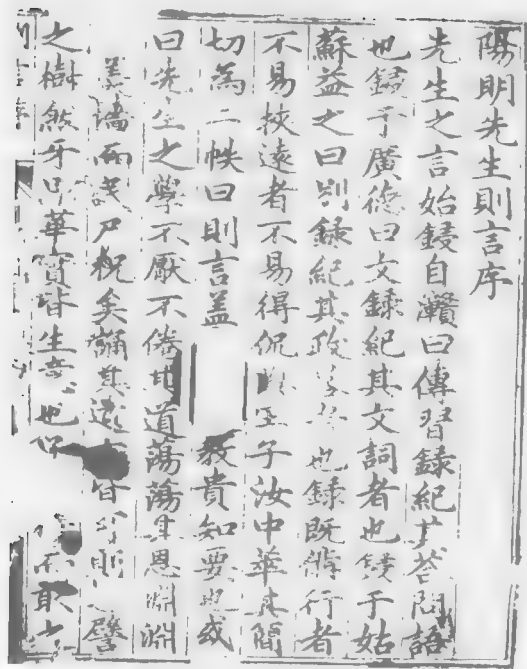 陽明先生則言序
先生之言始鋟自瀙曰傳習錄紀其荅問語
也鋟于廣德曰文錄紀其文詞者也鋟于姑
蘇益之曰別錄紀其政 者也錄既備行者
不易挾遠者不易得侃 王子汝中萃其簡
切為二帙曰則言蓋 教貴知要也或
曰先生之學不厭不倦 道蕩蕩其恩淵淵
美墻而謨尸祝矣 其 言皆 則 譬
之樹然牙 華實皆生意也 而取